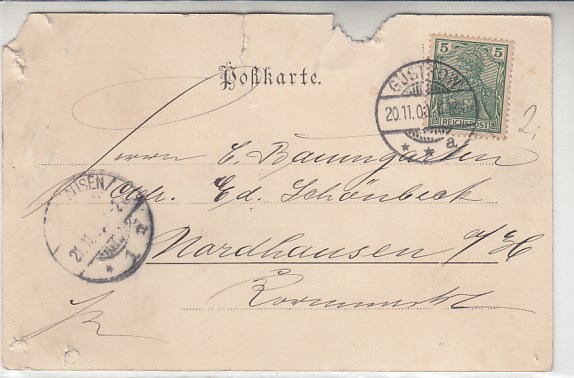 Postkarte.
5 5
REICHSPOST
GÜSTROW
20.11.00
a.
2.
Herrn C. Baumgarten
Adr. Ed. Schönbeck
Nordhausen a/H
Kornmarkt
HAUSEN
21.11.
1 a